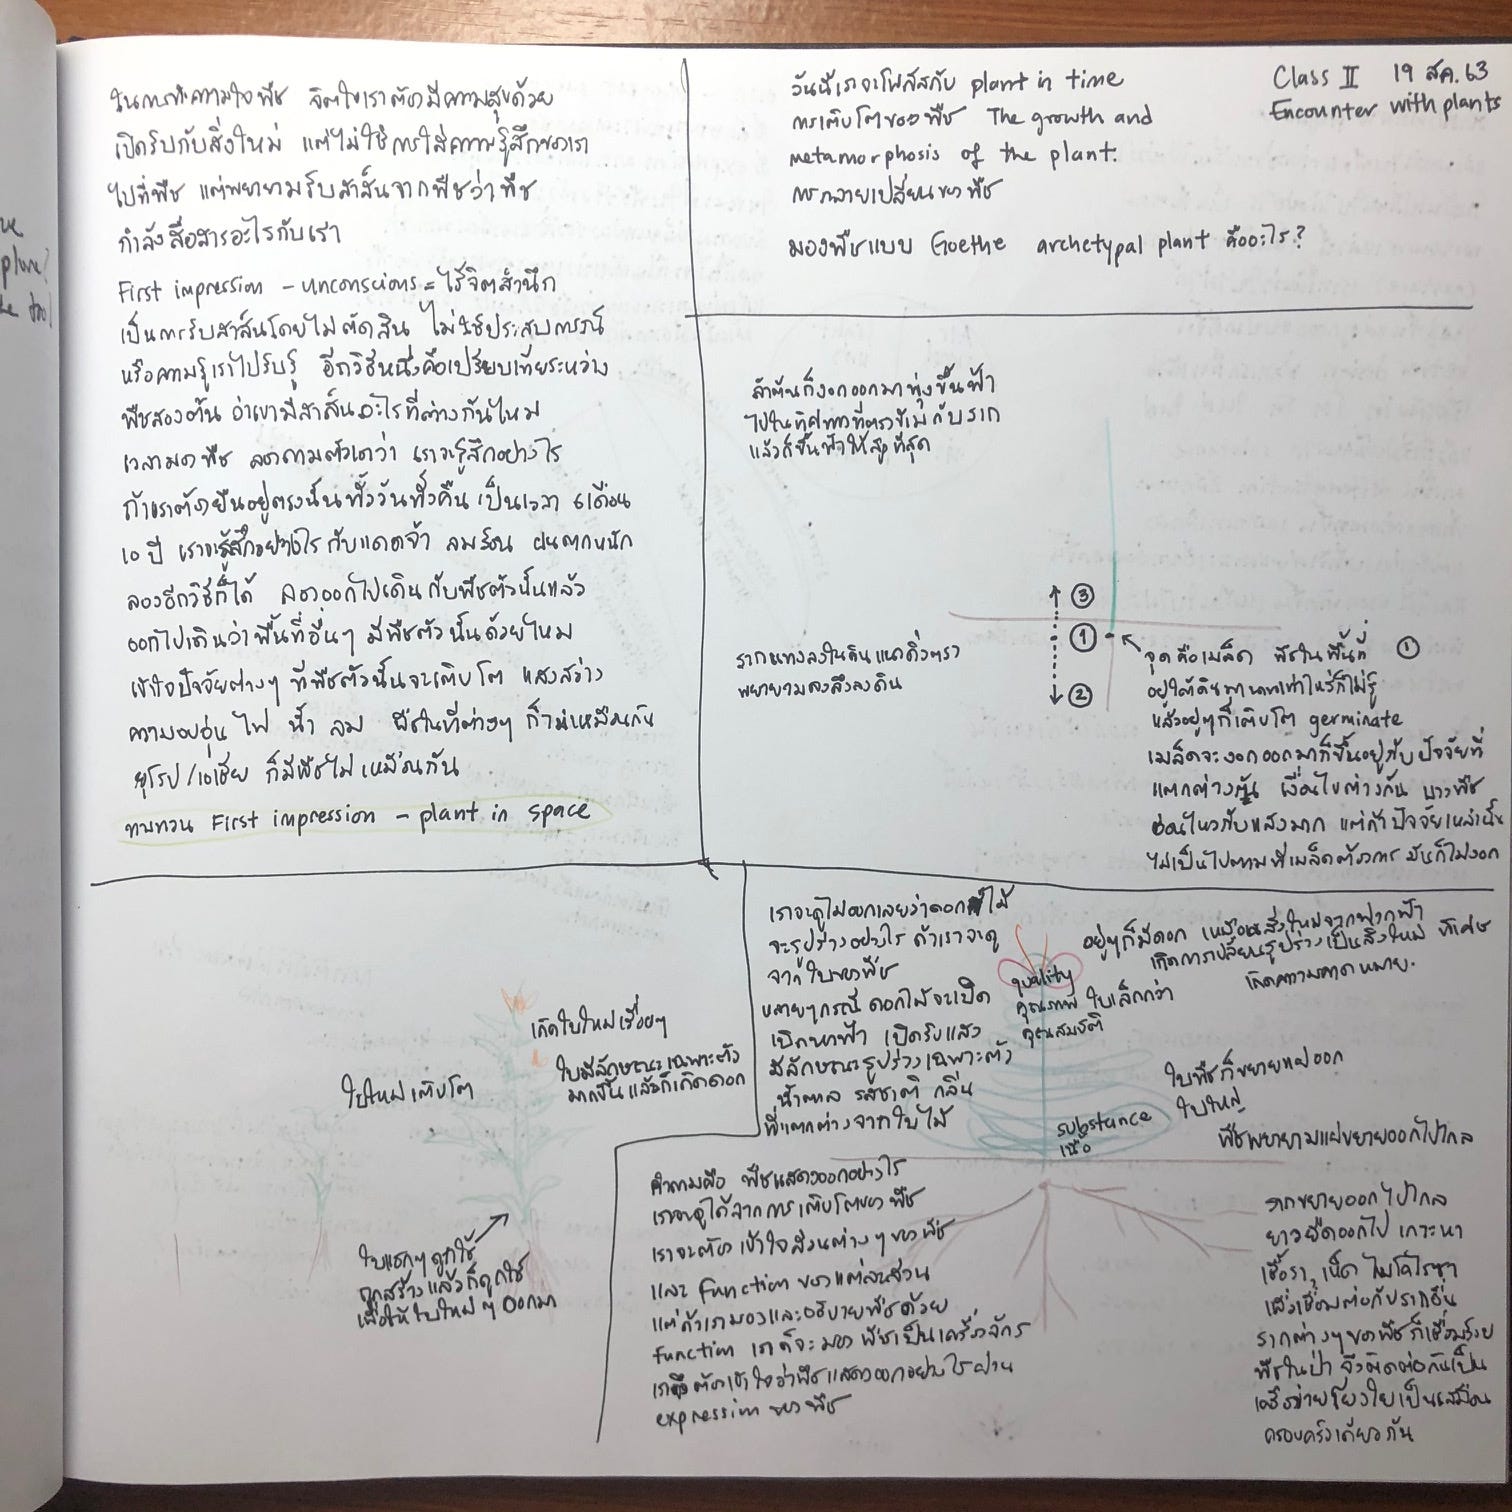 ในการทำความใจพืช จิตใจเราต้องมีความสุขด้วย
เปิดรับกับสิ่งใหม่ แต่ไม่ใช่การใส่ความรู้สึกของเรา
ไปที่พืช แต่พยายามรับสาส์นจากพืชว่าพืช
กำลังสื่อสารอะไรกับเรา
First impression - unconscious = ไร้จิตสำนึก
เป็นการรับสาส์นโดยไม่ตัดสิน ไม่ใช้ประสบการณ์
หรือความรู้เราไปรับรู้ อีกวิธีหนึ่งคือเปรียบเทียบระหว่าง
พืชสองต้น ว่าเขามีสาส์นอะไรที่ต่างกันไหม
เวลามองพืช ลองถามตัวเองว่า เราจะรู้สึกอย่างไร
ถ้าเราต้องยืนอยู่ตรงนั้นทั้งวันทั้งคืน เป็นเวลา 6 เดือน
10 ปี เราจะรู้สึกอย่างไรกับแดดจ้า ลมร้อน ฝนตกหนัก
ลองอีกวิธีก็ได้ ลองออกไปเดินกับพืชตัวนั้นแล้ว
ออกไปเดินว่าพื้นที่อื่นๆ มีพืชตัวนั้นด้วยไหม
เข้าใจปัจจัยต่างๆ ที่พืชตัวนั้นจะเติบโต แสงสว่าง
ความอบอุ่น ไฟ น้ำ ลม พืชในที่ต่างๆ ก็ไม่เหมือนกัน
ยุโรป/เอเชีย ก็มีพืชไม่เหมือนกัน
ทบทวน First impression - plant in space
วันนี้เราจะโฟกัสกับ plant in time
การเติบโตของพืช The growth and
metamorphosis of the plant.
การกลายเปลี่ยนของพืช
มองพืชแบบ Goethe archetypal plant คืออะไร?
Class II 19 สค. 63
Encounter with plants
ลำต้นก็งอกออกมาพุ่งขึ้นฟ้า
ไปในทิศทางที่ตรงข้ามกับราก
แล้วก็ขึ้นฟ้าให้สูงที่สุด
③
①
②
รากแทงลงในดินแนวดิ่งตรง
พยายามลงลึกลงดิน
จุดคือเมล็ด พืชในพื้นที่ ①
อยู่ใต้ดินนานเท่าไหร่ก็ไม่รู้
แล้วอยู่ๆก็เติบโต germinate
เมล็ดจะงอกออกมาก็ขึ้นอยู่กับปัจจัยที่
แตกต่างกัน เงื่อนไขต่างกัน บางพืช
อ่อนไหวกับแสงมาก แต่ถ้าปัจจัยเหล่านั้น
ไม่เป็นไปตามที่เมล็ดต้องการ มันก็ไม่งอก
เกิดใบใหม่เรื่อยๆ
ใบมีลักษณะเฉพาะตัว
มากขึ้น แล้วก็เกิดดอก
ใบใหม่เติบโต
ใบแรกๆ ถูกใช้
ถูกสร้างแล้วก็ถูกใช้
เพื่อให้ใบใหม่ๆ ออกมา
เราจะดูไม่ออกเลยว่าดอกไม้
จะรูปร่างอย่างไร ถ้าเราจะดู
จากใบของพืช
หลายๆกรณี ดอกไม้จะเปิด
เบิกหาฟ้า เปิดรับแสง
มีลักษณะรูปร่างเฉพาะตัว
น้ำตาล รสชาติ กลิ่น
ที่แตกต่างจากใบไม้
อยู่ๆก็มีดอก เหมือนสิ่งใหม่จากฟากฟ้า
เกิดการเปลี่ยนรูปร่างเป็นสิ่งใหม่ พิเศษ
เกิดความคาดหมาย.
quality
คุณภาพ ใบเล็กกว่า
คุณสมบัติ
ใบพืชก็ขยายแผ่ออก
ใบใหญ่
substance
เนื้อ
พืชพยายามแผ่ขยายออกไปไกล
คำถามคือ พืชแสดงออกอย่างไร
เราจะดูได้จากการเติบโตของพืช
เราจะต้องเข้าใจส่วนต่างๆ ของพืช
และ Function ของแต่ละส่วน
แต่ถ้าเรามองและอธิบายพืชด้วย
function เราก็จะมองพืชเป็นเครื่องจักร
เราต้องเข้าใจว่าพืชแสดงออกอย่างไรผ่าน
expression ของพืช
รากขยายออกไปไกล
ยาวยืดออกไป เกาะหา
เชื้อรา, เห็ด ไมโคไรซา
เพื่อเชื่อมต่อกับรากอื่น
รากต่างๆของพืชก็เชื่อมโยง
พืชในป่า จึงติดต่อกันเป็น
เครือข่ายโยงใยเป็นเสมือน
ครอบครัวเดียวกัน